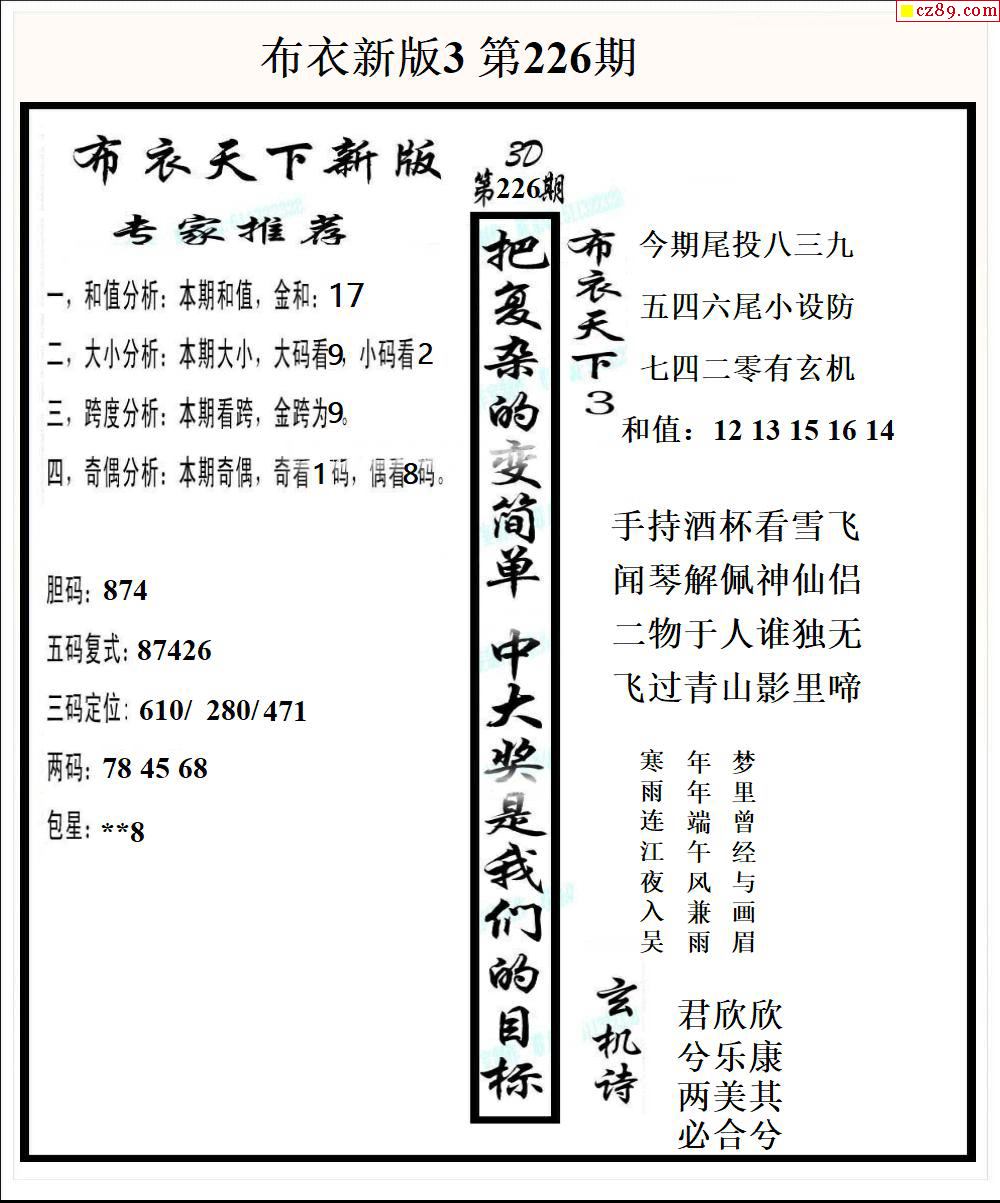 cz89.com
布衣新版3 第226期
布衣天下新版
专家推荐
一，和值分析：本期和值，金和：17
二，大小分析：本期大小，大码看9，小码看2
三，跨度分析：本期看跨，金跨为9。
四，奇偶分析：本期奇偶，奇看1码，偶看8码。
胆码：874
五码复式：87426
三码定位：610/ 280/471
两码：78 45 68
包星：**8
3D
第226期
把复杂的变简单 中大奖是我们的目标
布衣天下3
今期尾投八三九
五四六尾小设防
七四二零有玄机
和值：12 13 15 16 14
手持酒杯看雪飞
闻琴解佩神仙侣
二物于人谁独无
飞过青山影里啼
寒雨连江夜入吴
年年端午风兼雨
梦里曾经与画眉
玄机诗
君欣欣
兮乐康
两美其
必合兮